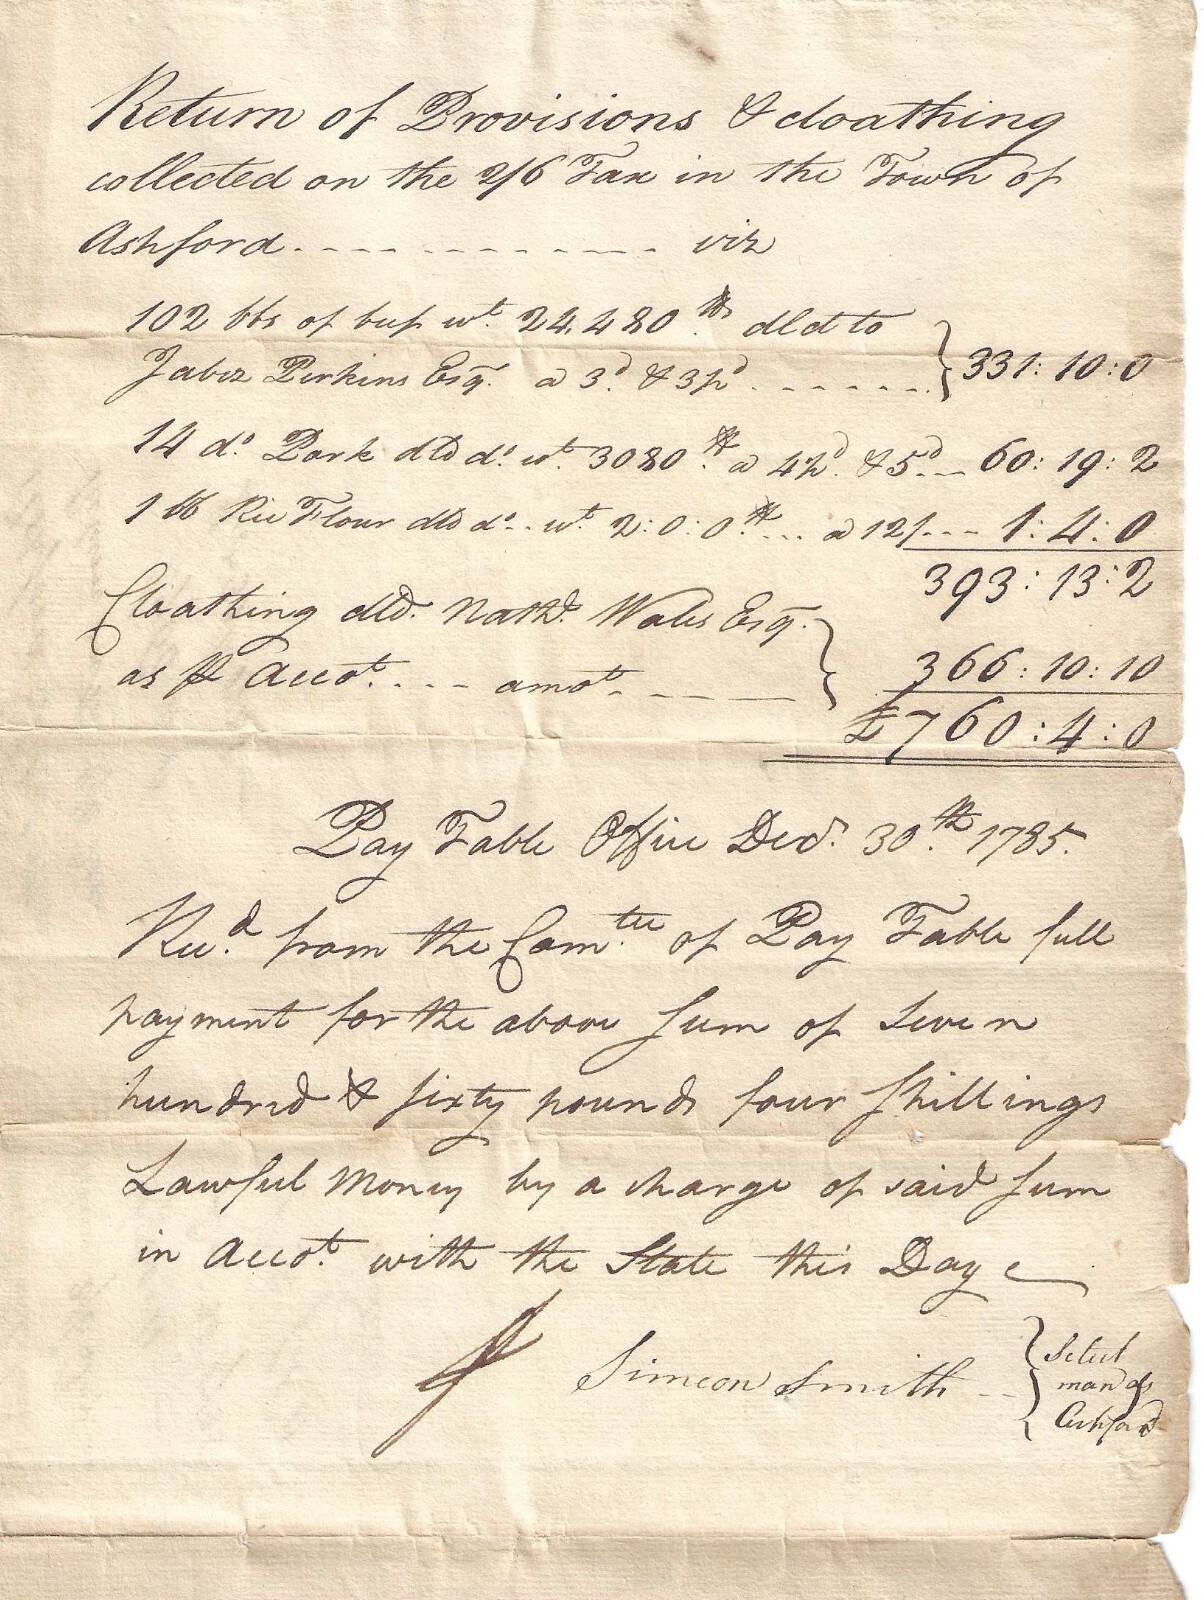 Return of Provisions & cloathing
collected on the 2/6 Tax in the Town of
Ashford - - - - - - - - - - - - viz
102 bbs of beef wt. 24,480 lb dld to
Jabez Perkins Esqr. a 3d. & 3½d - - - - - - 331: 10: 0
14 do. Pork dld do. wt. 3080 lb. a 4½d. & 5d - - 60: 19: 2
1 bb Rie Flour dld do - - wt. 2: 0: 0 lb - - - a 12/ - - - 1: 4: 0
393: 13: 2
Cloathing dld. Nathl. Wales Esqr.
as pr Accot. - - - - amot. - - - - 366: 10: 10
£760: 4: 0
Pay Table Office Decr. 30th. 1785.
Recd. from the Comtee of Pay Table full
payment for the above Sum of Seven
hundred & Sixty pounds four Shillings
Lawful Money by a charge of said Sum
in Accot. with the State this Day
Simeon Smith - - Select
man of
Ashford